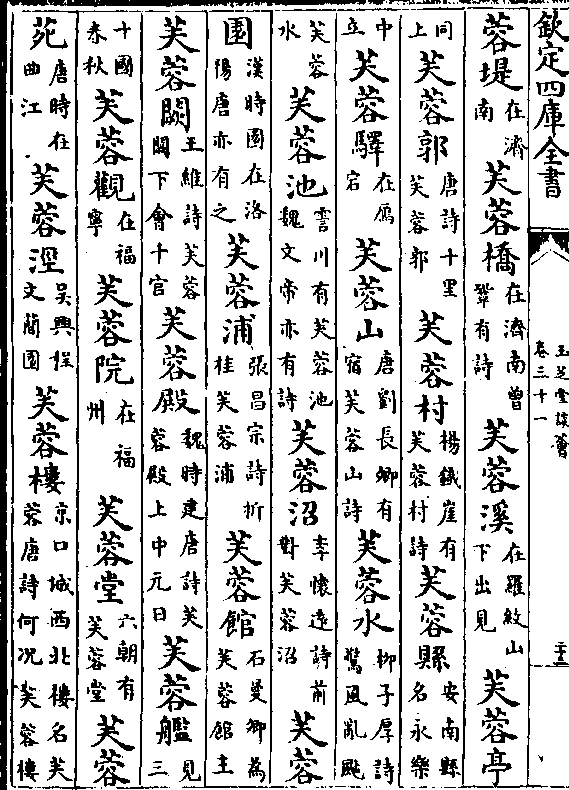 欽定四庫全書
玉芝堂談薈
卷三十一
蓉堤在濟南芙蓉橋在濟南曾鞏有詩芙蓉溪在羅紋山下出見芙蓉亭
同上芙蓉郭唐詩十里芙蓉郭芙蓉村楊鐵崖有芙蓉村詩芙蓉縣安南縣名永樂
中立芙蓉驛在鴈宕芙蓉山唐劉長卿有宿芙蓉山詩芙蓉水柳子厚詩驚風亂颭
芙蓉水芙蓉池霅川有芙蓉池魏文帝亦有詩芙蓉沼李懷遠詩前對芙蓉沼芙蓉
園漢時園在洛陽唐亦有之芙蓉浦張昌宗詩折桂芙蓉浦芙蓉館石曼卿為芙蓉館主
芙蓉闕王維詩芙蓉闕下會千官芙蓉殿魏時建唐詩芙蓉殿上中元日芙蓉艦見三
十國春秋芙蓉觀在福寧芙蓉院在福州芙蓉堂六朝有芙蓉堂芙蓉
苑唐時在曲江芙蓉涇吳興程文蘭園芙蓉樓京口城西北樓名芙蓉唐詩何况芙蓉樓